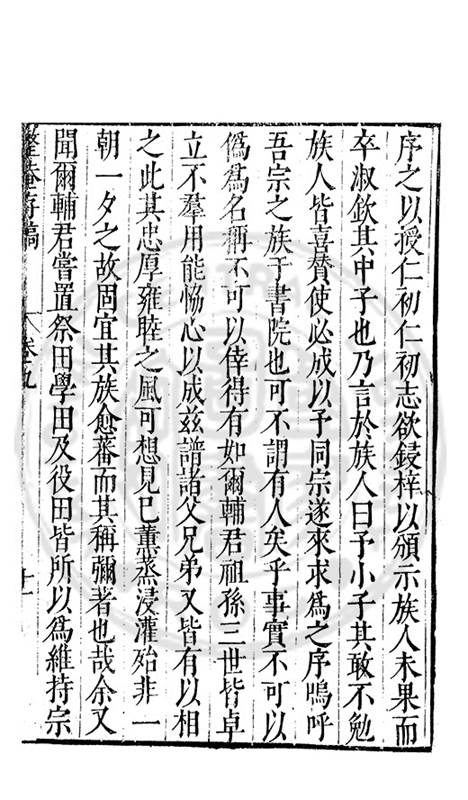 序之以授仁初仁初志欲鋟梓以頒示族人未果而
卒淑欽其中子也乃言於族人曰予小子其敢不勉
族人皆喜賛使必成以予同宗遂來求爲之序嗚呼
吾宗之族于書院也可不謂有人矣乎事實不可以
僞爲名稱不可以倖得有如爾輔君祖孫三世皆卓
立不羣用能恊心以成兹譜諸父兄弟又皆有以相
之此其忠厚雍睦之風可想見已薫蒸浸灌殆非一
朝一夕之故固宜其族愈蕃而其稱彌者也哉余又
聞爾輔君嘗置祭田學田及役田皆所以爲維持宗
整菴存稿 卷九 十一